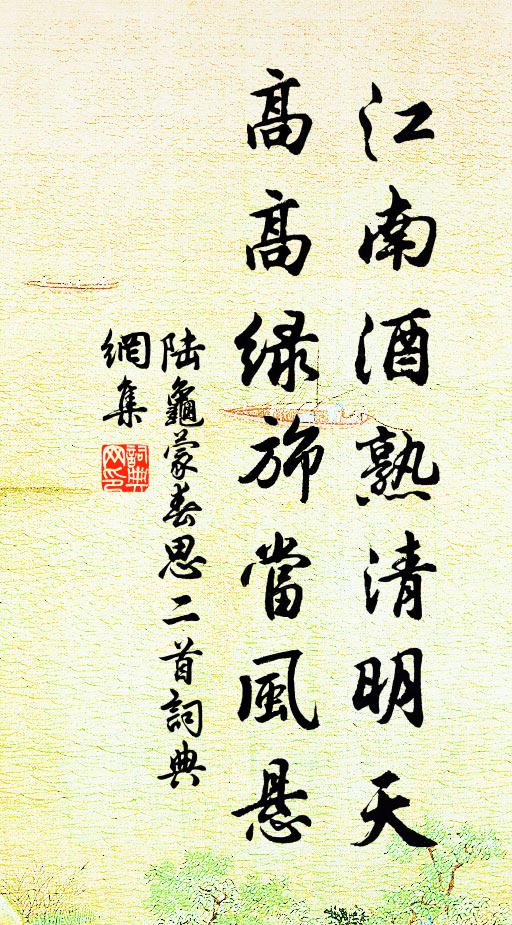 江南酒熟清明天
高高緑斾當風悬
陆龜蒙春思二首詞典
網集
詞典
网印